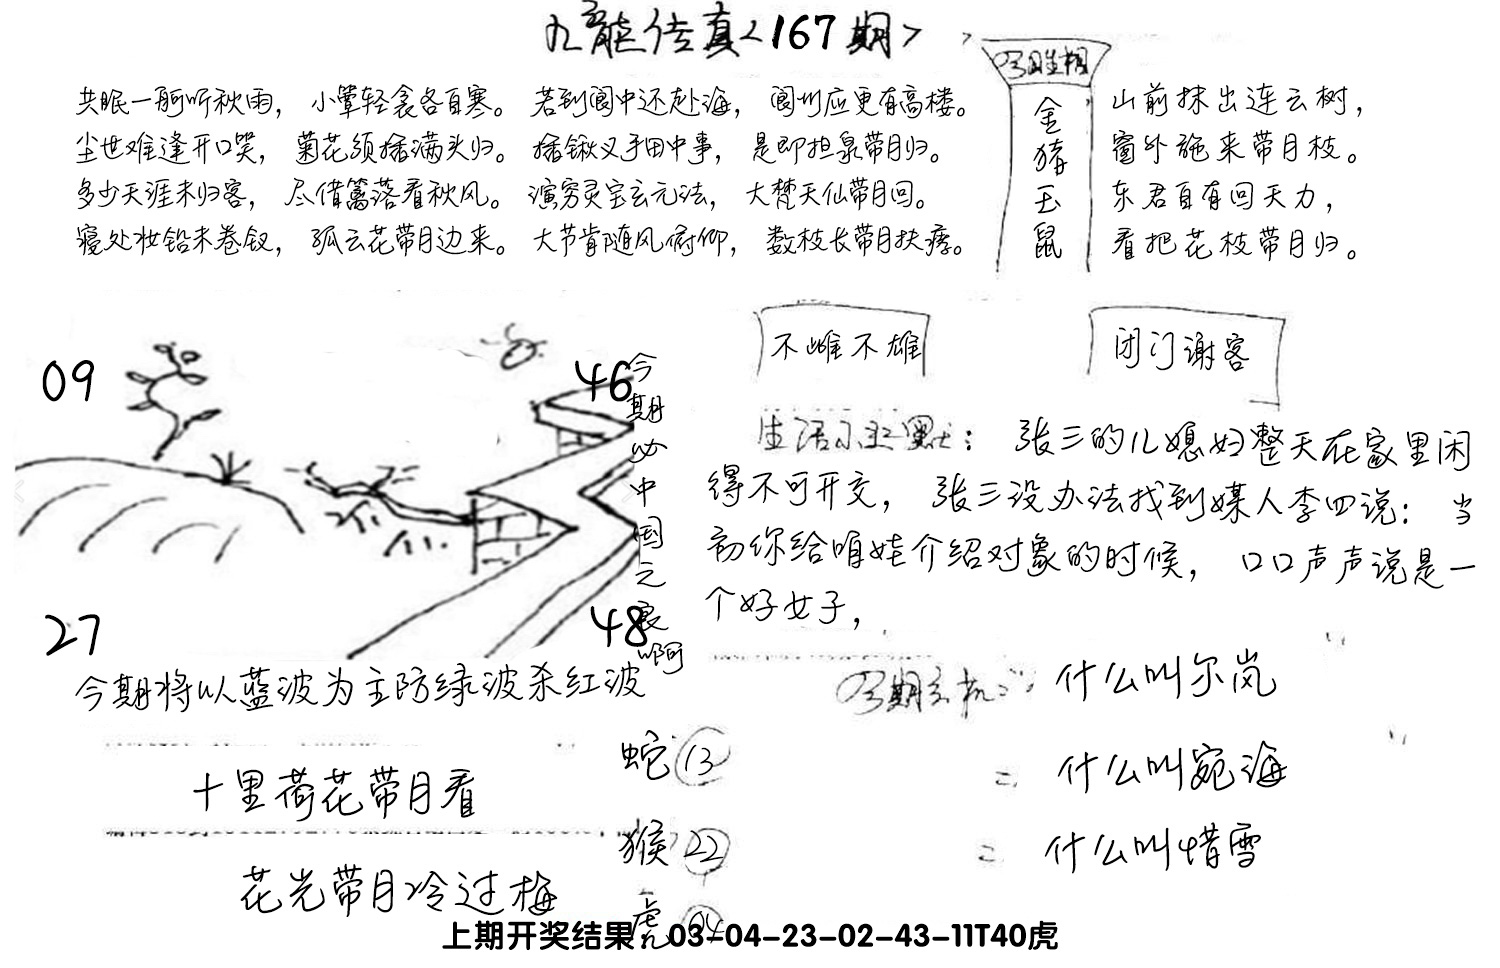 九龙传真<167期>
共眠一舸听秋雨，小簟轻衾各自寒。若到阆中还赴海，阆州应更有高楼。
尘世难逢开口笑，菊花须插满头归。插锹叉手田中事，是即担泉带月归。
多少天涯未归客，尽借篱落看秋风。演穷灵宝玄元法，大梵天仙带月回。
寝处妆铅未卷钗，孤云花带月边来。大节肯随风俯仰，数枝长带月扶疏。
金猪玉鼠
山前抹出连云树，
窗外施来带月枝。
东君自有回天力，
看把花枝带月归。
09
46
27
48
今期必中国之最啊
今期将以蓝波为主防绿波杀红波
不雌不雄
闭门谢客
生活小幽默：张三的儿媳妇整天在家里闲
得不可开交，张三没办法找到媒人李四说：当
初你给咱娃介绍对象的时候，口口声声说是一
个好女子，
今期玄机：什么叫尔岚
= 什么叫宛海
= 什么叫惜雪
十里荷花带月看
花光带月冷过梅
蛇13
猴22
虎04
上期开奖结果：03-04-23-02-43-11T40虎